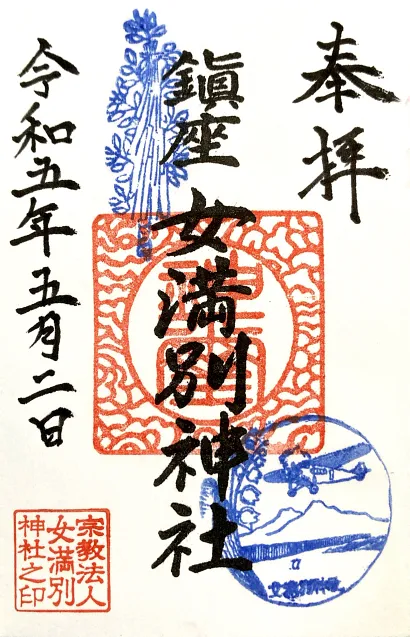 奉拝
鎮座
女満別神社
令和五年五月二日
宗教法人
女満別
神社之印
女満別神社